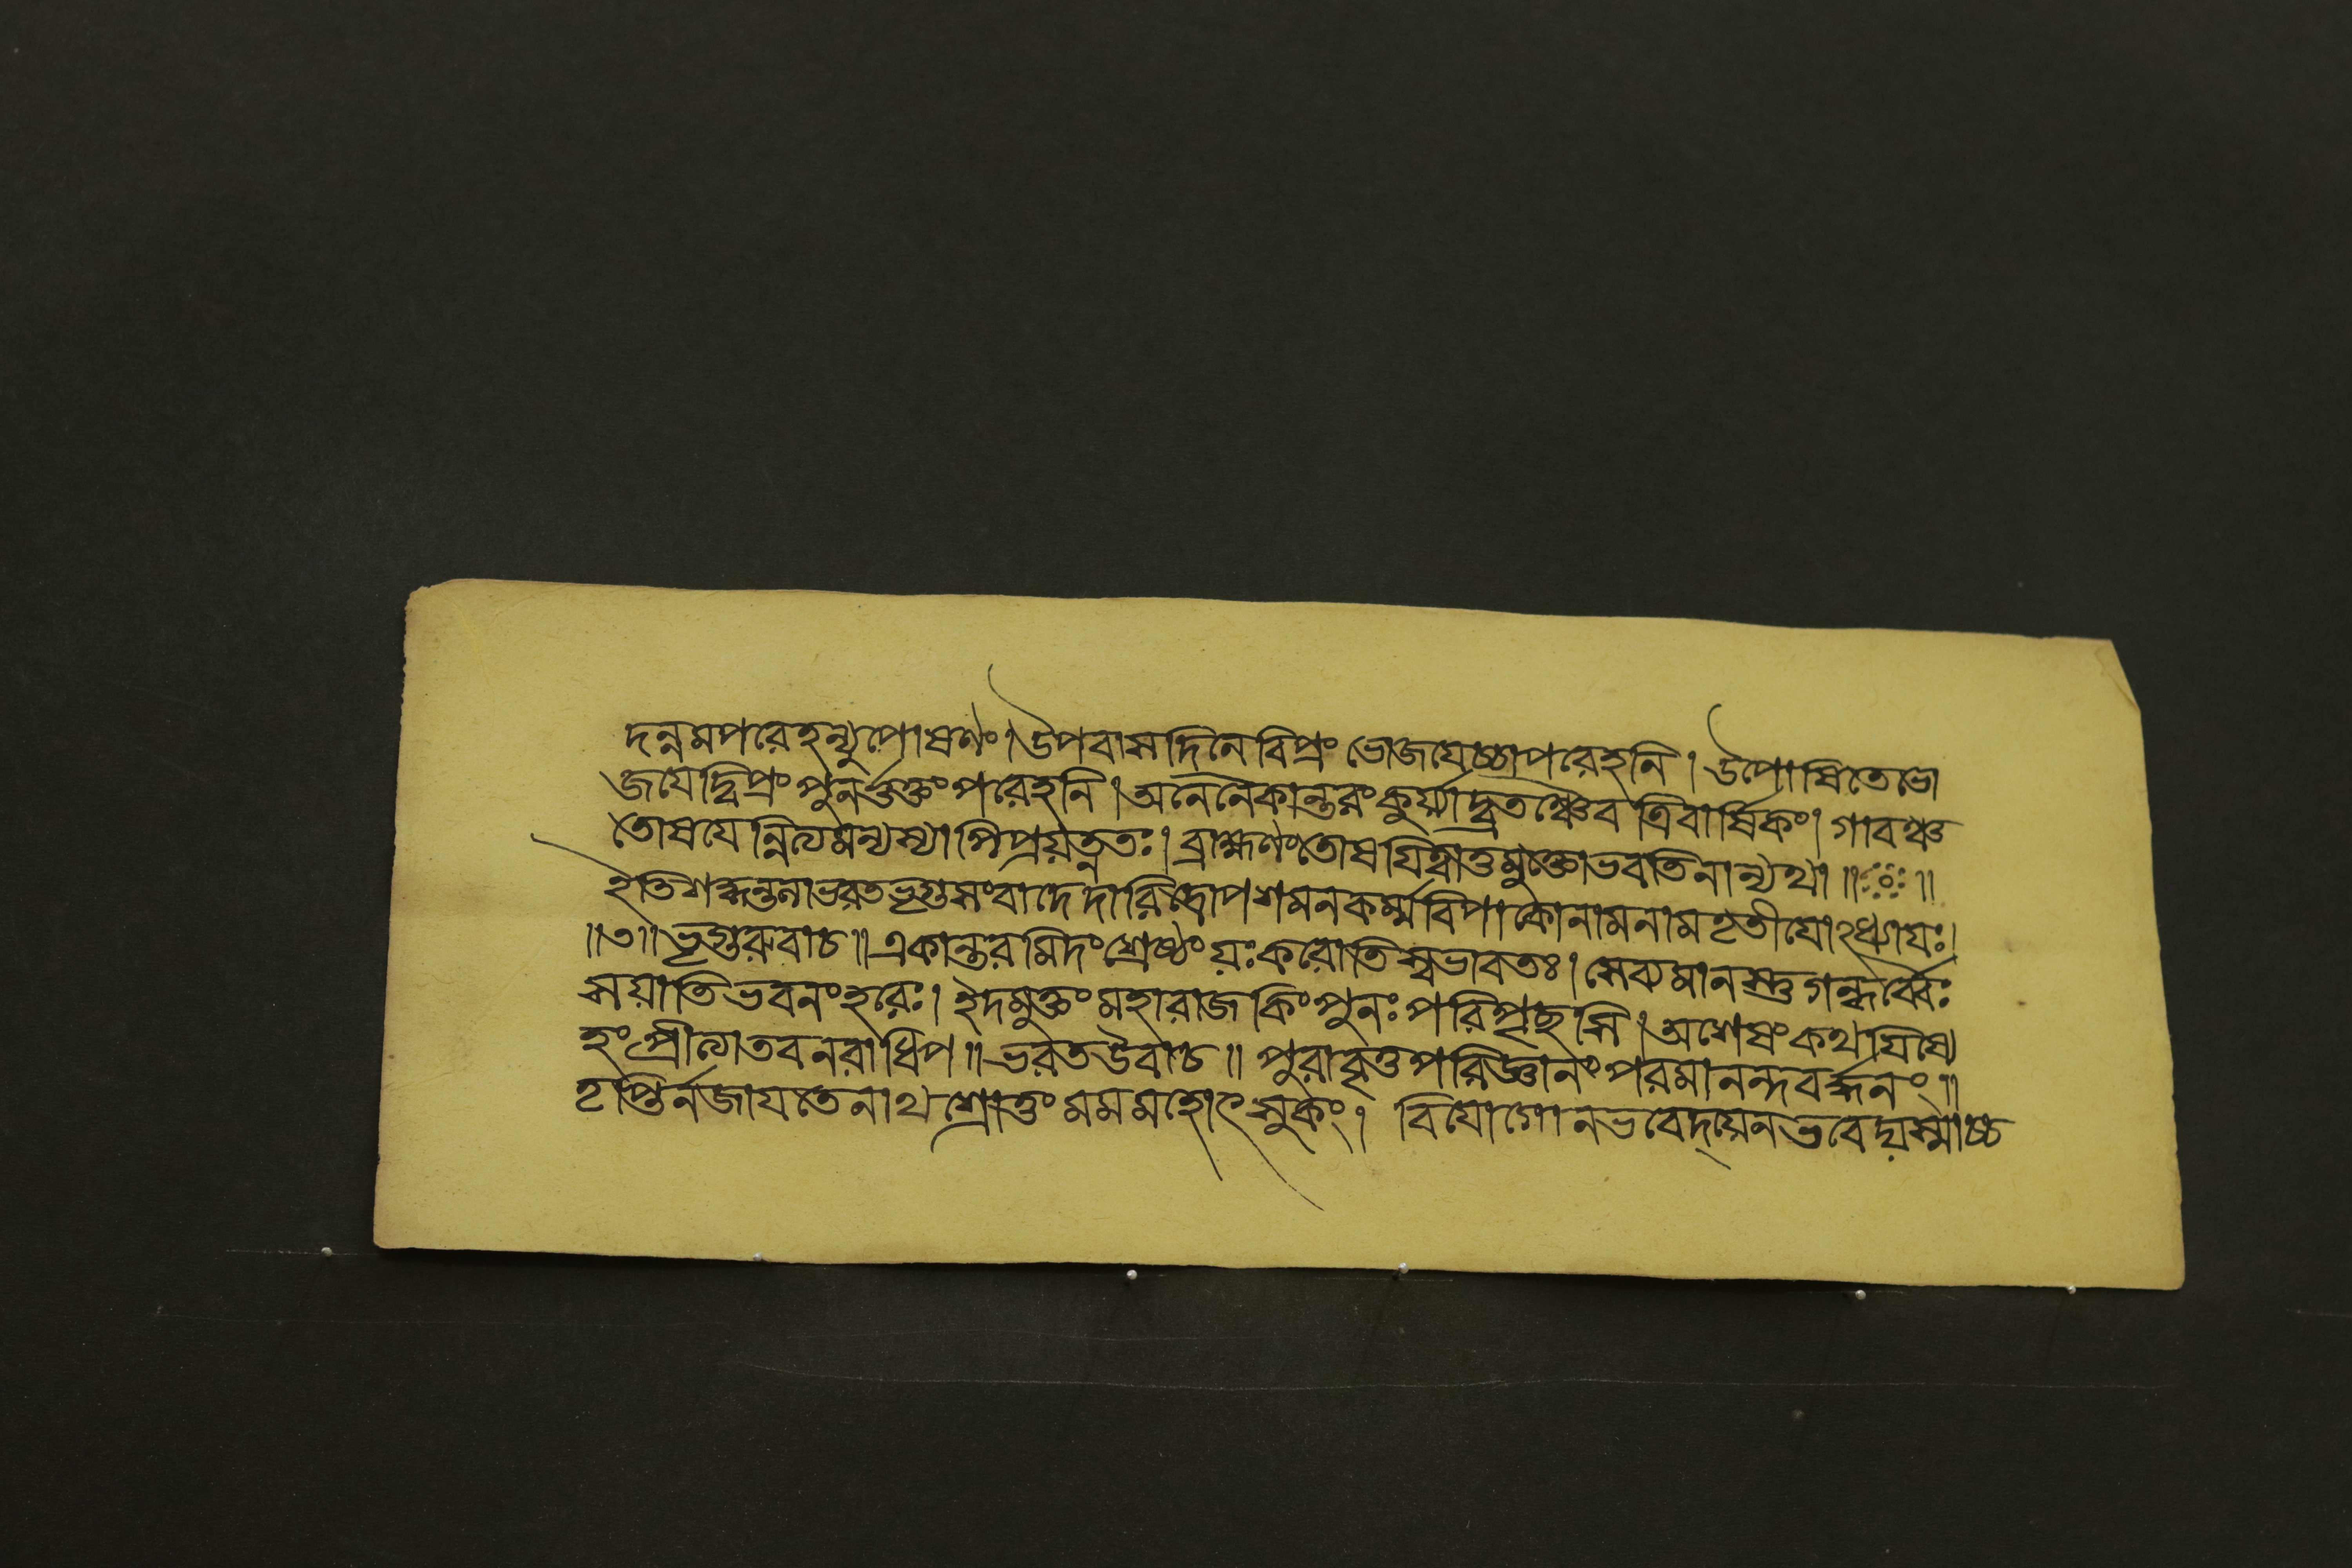 দন্নমপরেহন্যুপোষণং। উপবাসদিনে বিপ্রং ভোজযেচ্চাপরেহনি। উপোষিতে ভো
জযেদ্বিপ্রং পুনর্ভুক্তং পরেহনি। অনেনৈকান্তরং কুর্য্যাদ্ব্রতঞ্চৈব ত্রিবার্ষিকং। গাবশ্চ
তোষযেন্নিত্যমন্যস্যাপি প্রযত্নতঃ। ব্রাহ্মণং তোষযিত্বাত্তু মুক্তো ভবতি নান্যথা॥ ॥
ইতি ভরতভৃগুসংবাদে দারিদ্রোপশমনকর্ম্মবিপাকোনামনাম তৃতীযোঽধ্যাযঃ।
॥৩॥ ভৃগুরুবাচ॥ একান্তরমিদং শ্রেষ্ঠং যঃ করোতি স্বভাবতঃ। সেব্যমানস্তু গন্ধর্ব্বৈঃ
স যাতি ভবনং হরেঃ। ইদমুক্তং মহারাজ কিং পুনঃ পরিপৃচ্ছসি। অশেষং কথযিষ্যে
হং প্রীত্যা তব নরাধিপ॥ ভরত উবাচ॥ পুরাবৃত্তপরিজ্ঞানং পরমানন্দবর্দ্ধনং॥
তৃপ্তির্নজাযতে নাথ শ্রোত্তুং মম মহোৎসুকং। বিযোগো ন ভবেদ্যেন ভবেদ্যস্মাচ্চ